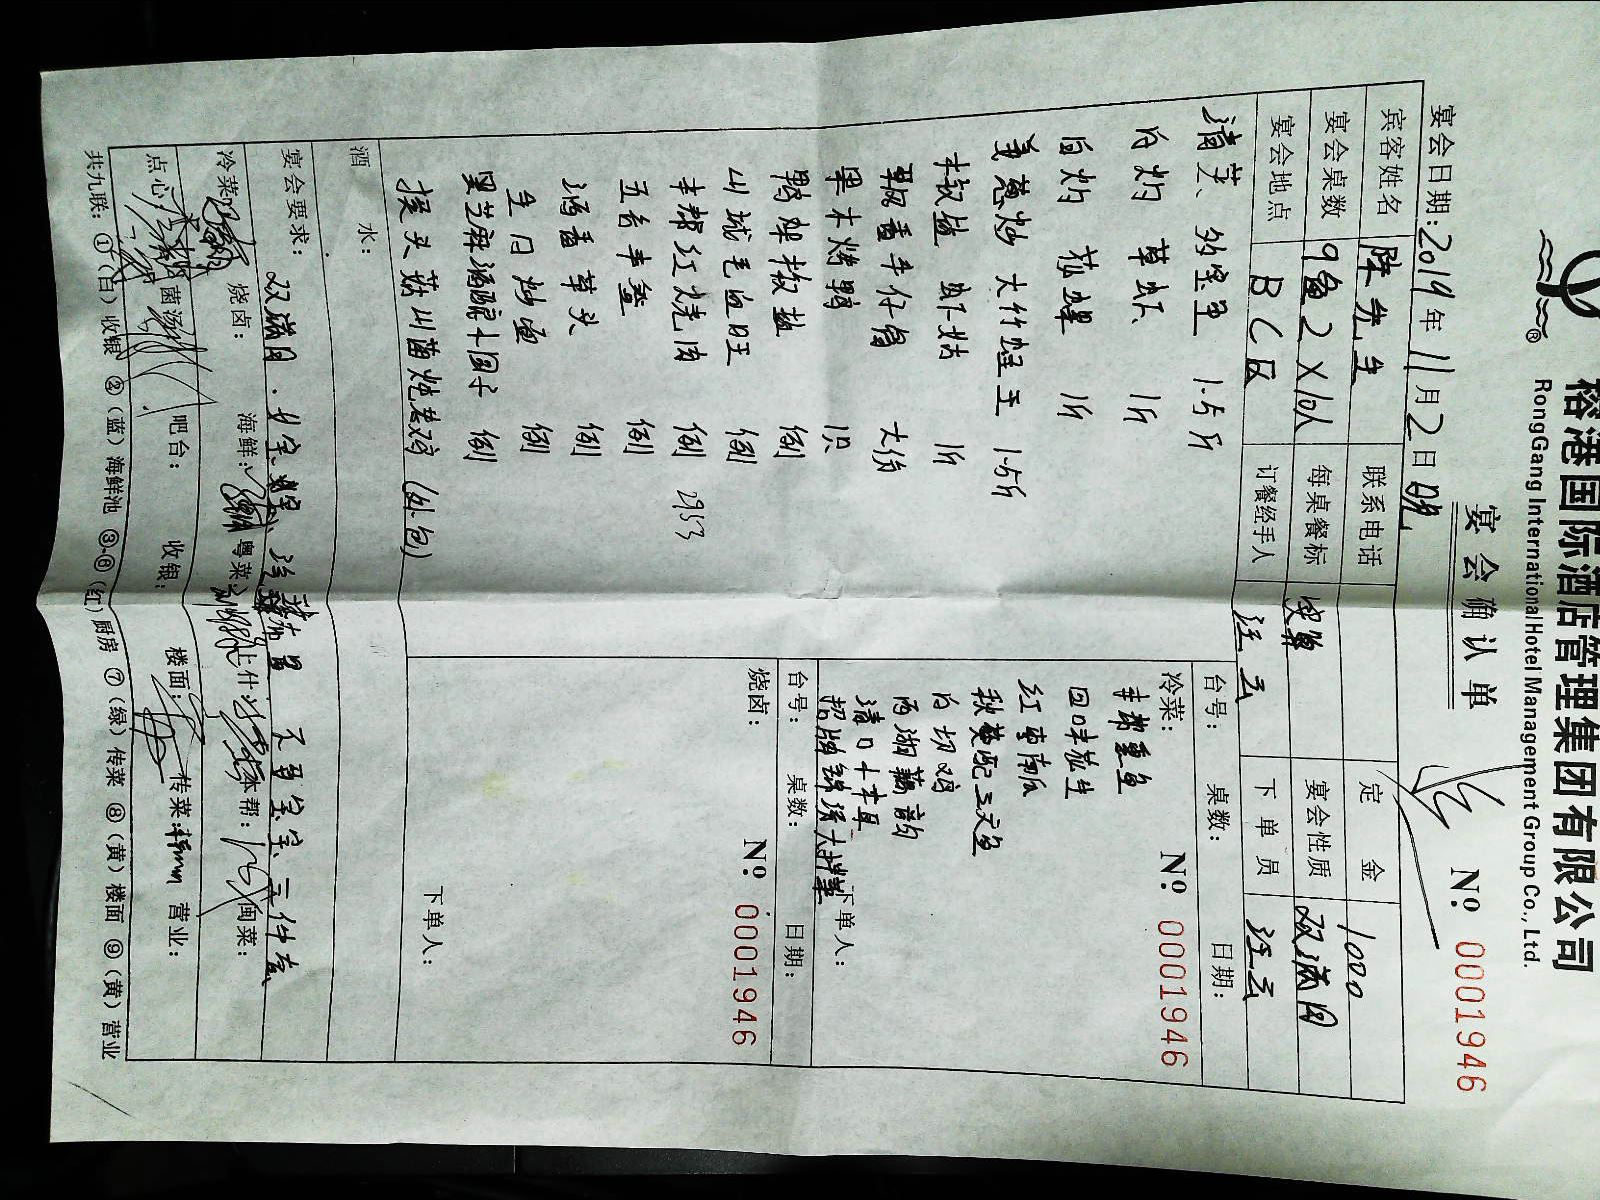 榕港国际酒店管理集团有限公司
RongGang International Hotel Management Group Co., Ltd.
®
宴会确认单
№: 0001946
宴会日期:2019年11月2日晚
宾客姓名 陈先生 联系电话 定金 1000
宴会桌数 9备2×10人 每桌餐标 宴会性质 双满月
宴会地点 BC区 订餐经手人 汪云 下单员 汪云
清蒸 多宝鱼 1.5斤
白灼 草虾 1斤
白灼 花螺 1斤
姜葱炒 大竹蛏王 1.5斤
椒盐 虾姑 1斤
牛仔骨 大份
果木烤鸭 1只
鸭架椒盐 例
山城毛血旺 例
本帮红烧肉 例 2953
五香 例
酒香草头 例
例
黑芝麻酒酿小圆子 例
猴头菇山菌炖老鸡 (外包)
台号: 桌数: 日期:
冷菜: №: 0001946
本帮熏鱼
回味花生
红枣南瓜
秋葵配三文鱼
白切鸡
西湖藕韵
清口小木耳
招牌锦绣大拼盘
下单人:
台号: 桌数: 日期:
烧卤: №: 0001946
下单人:
酒水:
宴会要求: 双满月.
冷菜: 烧卤: 海鲜: 粤菜: 上什: 本帮: 闽菜:
点心: 菌汤: 吧台: 收银: 楼面: 传菜: 营业:
共九联: ①(白)收银 ②(蓝)海鲜池 ③-⑥(红)厨房 ⑦(绿)传菜 ⑧(黄)楼面 ⑨(黄)营业